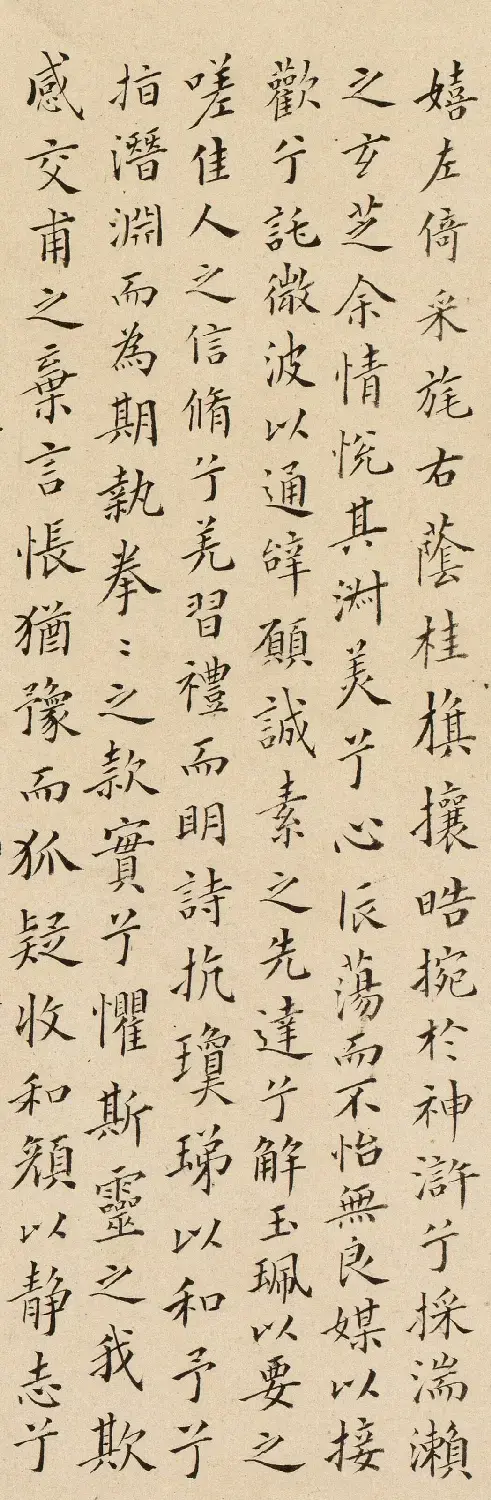 嬉左倚采旄右蔭桂旗攘皓捥於神滸兮採湍瀨
之玄芝余情悅其淑美兮心辰蕩而不怡無良媒以接
歡兮託微波以通辝願誠素之先達兮解玉珮以要之
嗟佳人之信脩兮羌習禮而明詩抗瓊珶以和予兮
指潛淵而為期執拳〻之款實兮懼斯靈之我欺
感交甫之棄言悵猶豫而狐疑收和顏以静志兮